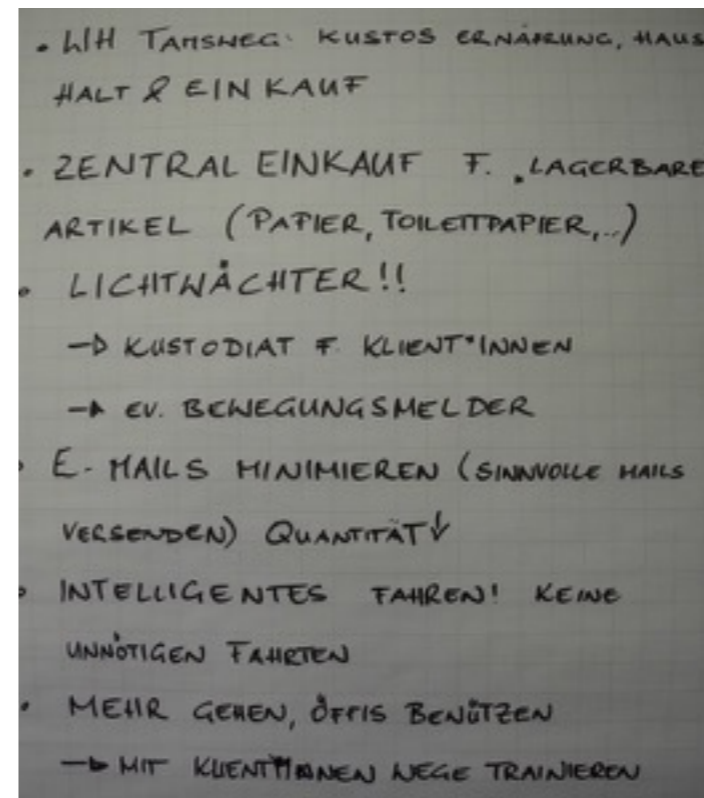 • WH TAMSWEG: KUSTOS ERNÄHRUNG, HAUS
HALT & EINKAUF
• ZENTRAL EINKAUF F. LAGERBARE
ARTIKEL (PAPIER, TOILETTPAPIER,..)
• LICHTWÄCHTER!!
→ KUSTODIAT F. KLIENT*INNEN
→ EV. BEWEGUNGSMELDER
• E-MAILS MINIMIEREN (SINNVOLLE MAILS
VERSENDEN) QUANTITÄT↓
• INTELLIGENTES FAHREN! KEINE
UNNÖTIGEN FAHRTEN
• MEHR GEHEN, ÖFFIS BENÜTZEN
→ MIT WEGE TRAINIEREN